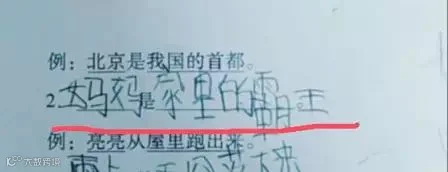 例：北京是我国的首都。
2.妈妈是家里的霸王
例：亮亮从屋里跑出来。
大数跨境